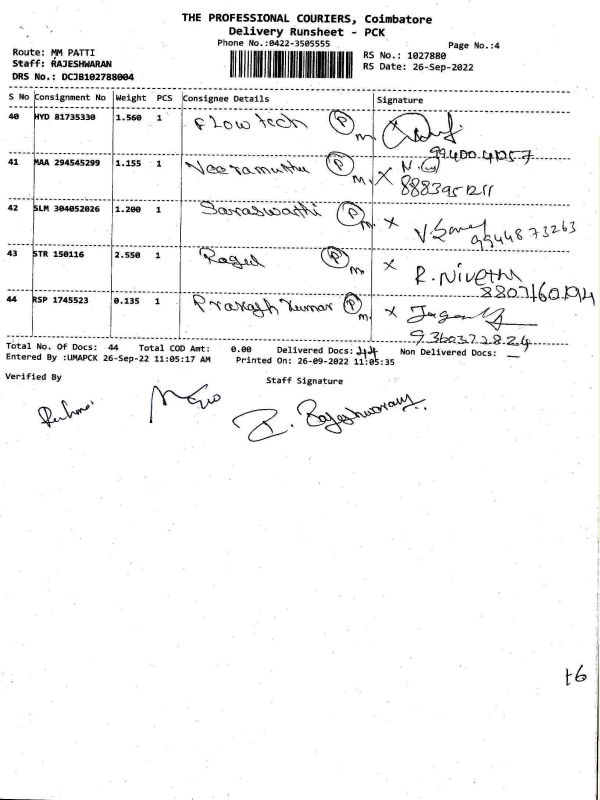 THE PROFESSIONAL COURIERS, Coimbatore
Delivery Runsheet - PCK
Phone No.:0422-3505555
Page No.:4
Route: MM PATTI
RS No.: 1027880
Staff: RAJESHWARAN
RS Date: 26-Sep-2022
DRS No.: DCJB102788004
S No Consignment No Weight PCS Consignee Details Signature
40 HYD 81735330 1.560 1 Flowtech P m
41 MAA 294545299 1.155 1 Veeramuthu P m. X
8883951211
42 SLM 304052026 1.200 1 Saraswathi P m. X
9944873263
43 STR 150116 2.550 1 Ragul P m. X R. Nivetha
8807160194
44 RSP 1745523 0.135 1 Prakash Kumar P m. X
9360372824
Total No. Of Docs: 44 Total COD Amt: 0.00 Delivered Docs: 44 Non Delivered Docs: —
Entered By :UMAPCK 26-Sep-22 11:05:17 AM Printed On: 26-09-2022 11:05:35
Verified By
Staff Signature
R. Rajeshwaran